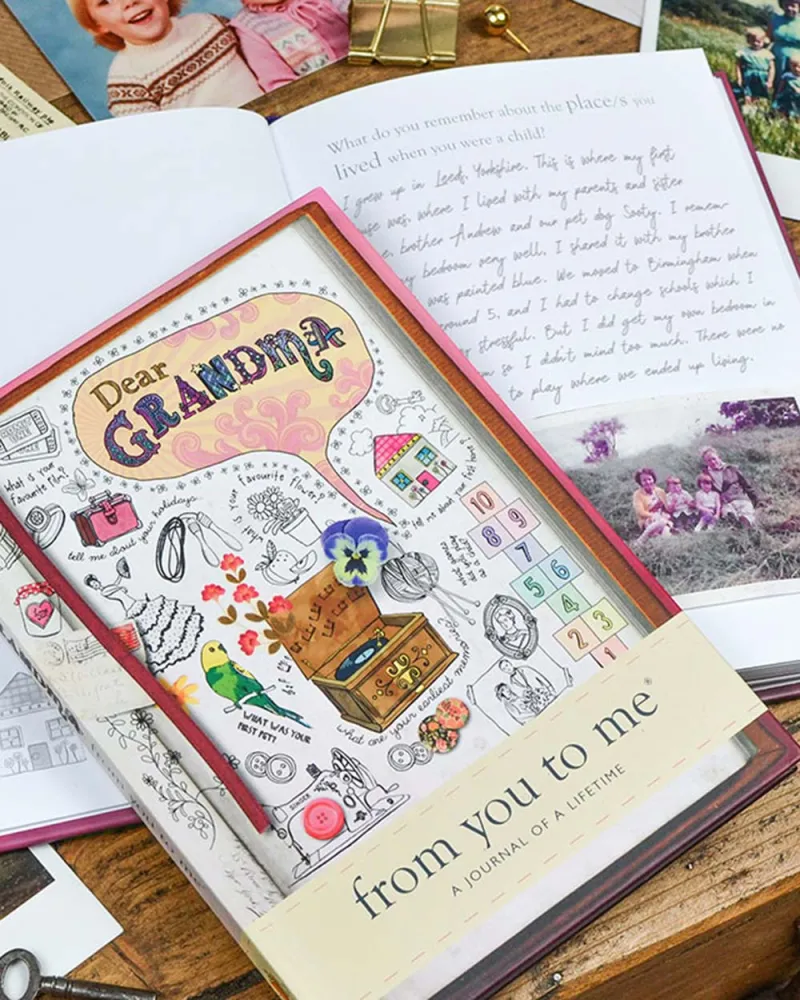 What do you remember about the place/s you
lived when you were a child?
I grew up in Leeds, Yorkshire. This is where my first
use was, where I lived with my parents and sister
e, brother Andrew and our pet dog Sooty. I remem-
y bedroom very well, I shared it with my brother
was painted blue. We moved to Birmingham when
round 5, and I had to change schools which I
stressful. But I did get my own bedroom in
m so I didn't mind too much. There were no
to play where we ended up living.
Dear
GRANDMA
what is your
favourite film?
tell me about your holidays
what is your favourite flower?
tell me about your first home?
10
8 9
7
5 6
4
2 3
1
WHAT WAS YOUR
FIRST PET?
what are your earliest memories?
SINGER
from you to me®
A JOURNAL OF A LIFETIME